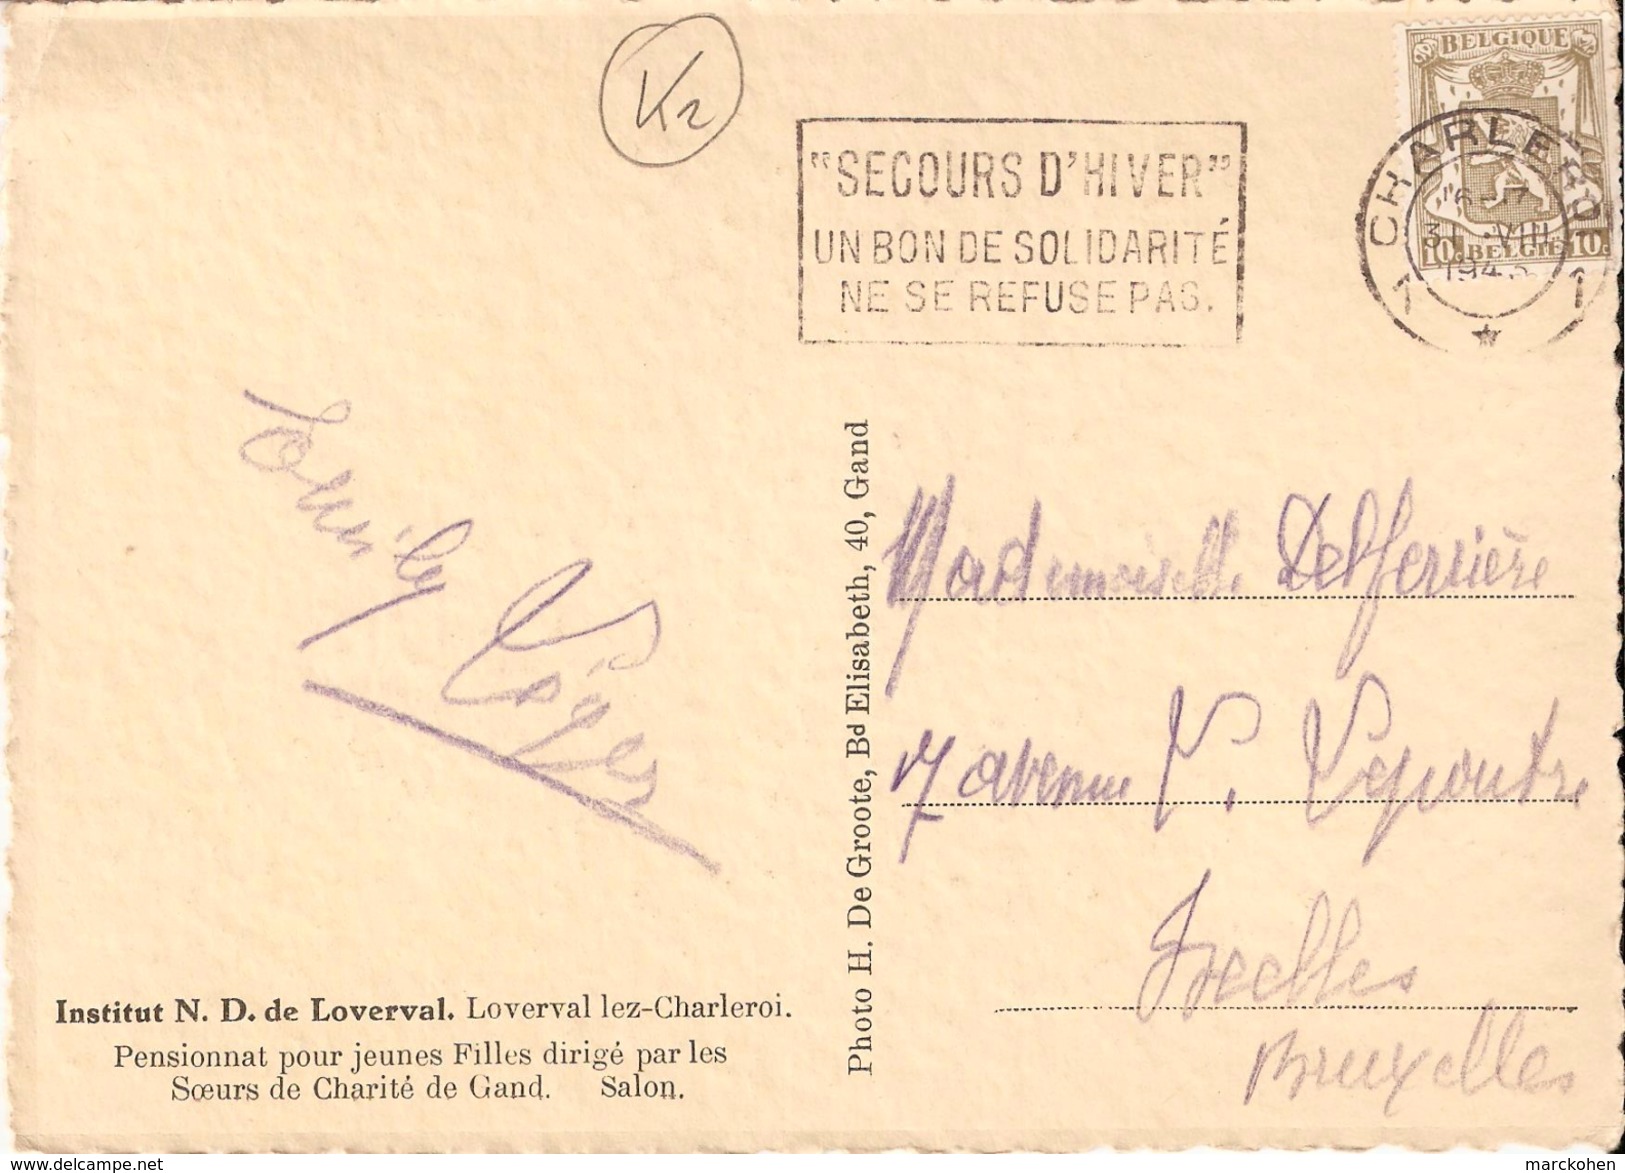 K2
BELGIQUE
"SECOURS D'HIVER"
UN BON DE SOLIDARITÉ
NE SE REFUSE PAS.
CHARLEROI
31 -VIII
194
1 1
10c BELGIE 10c
Léger
Mademoiselle Delferrière
7 avenue V. Lepoutre
Ixelles
Bruxelles
Photo H. De Groote, Bd Elisabeth, 40, Gand
Institut N. D. de Loverval. Loverval lez-Charleroi.
Pensionnat pour jeunes Filles dirigé par les
Sœurs de Charité de Gand. Salon.
delcampe.net
marckohen